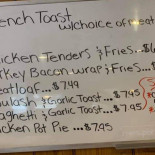 ench Toast
w/choice of meat
icken Tenders & Fries...$6
rkey Bacon wrap & Fries...
eatloaf... $7.49
oulash & Garlic Toast... $7.95
paghetti & Garlic Toast... $7.95
icken Pot Pie ... $7.95